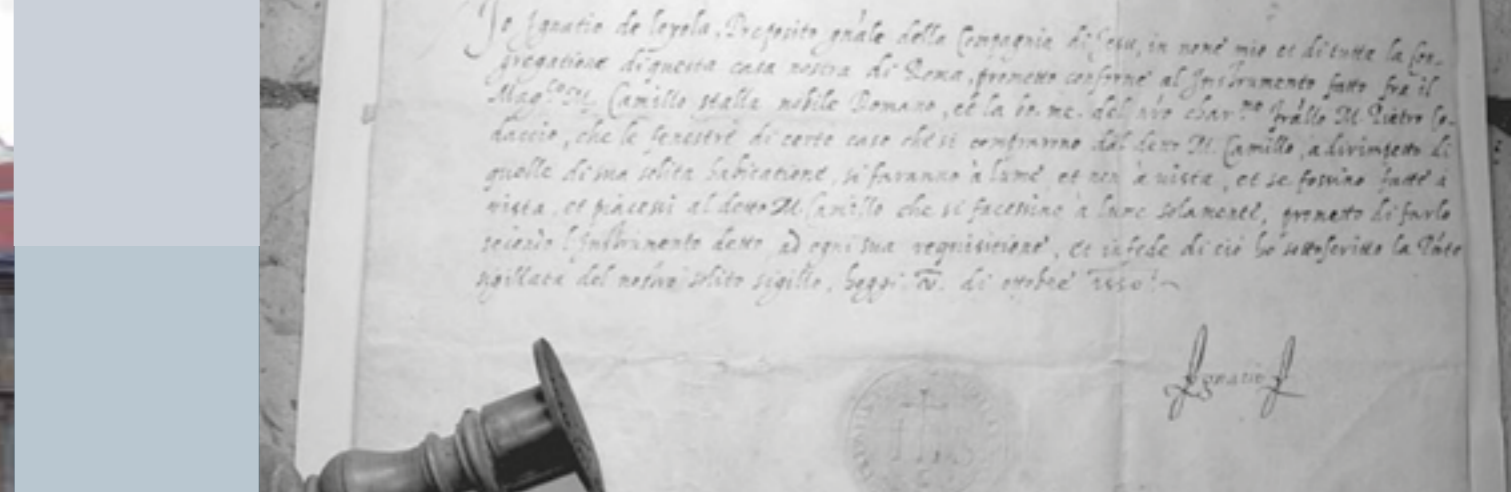 Io Ignatio de loyola, Preposito gñale della Compagnia di Jesu, in nome mio et di tutta la Con-
gregatione di questa casa nostra di Roma, prometto conforme al Instrumento fatto fra il
Mag.co M. Camillo stalla nobile Romano, et la bo. me. del nro char.mo frãllo M. Pietro Co-
daccio, che le fenestre di certe case che si comprorno dal detto M. Camillo, a dirimpetto di
quelle di sua solita habitatione, si faranno à lume et non à uista, et se fossino fatte à
uista, et piacessi al detto M. Camillo che si facessino à lume solamente, prometto di farlo
l'instrumento detto ad ogni sua requisitione, et in fede di ciò ho sottoscritto la Pñte
sigillata del nostro solito sigillo, hoggi di ottobre 1550
Ignatio
IHS